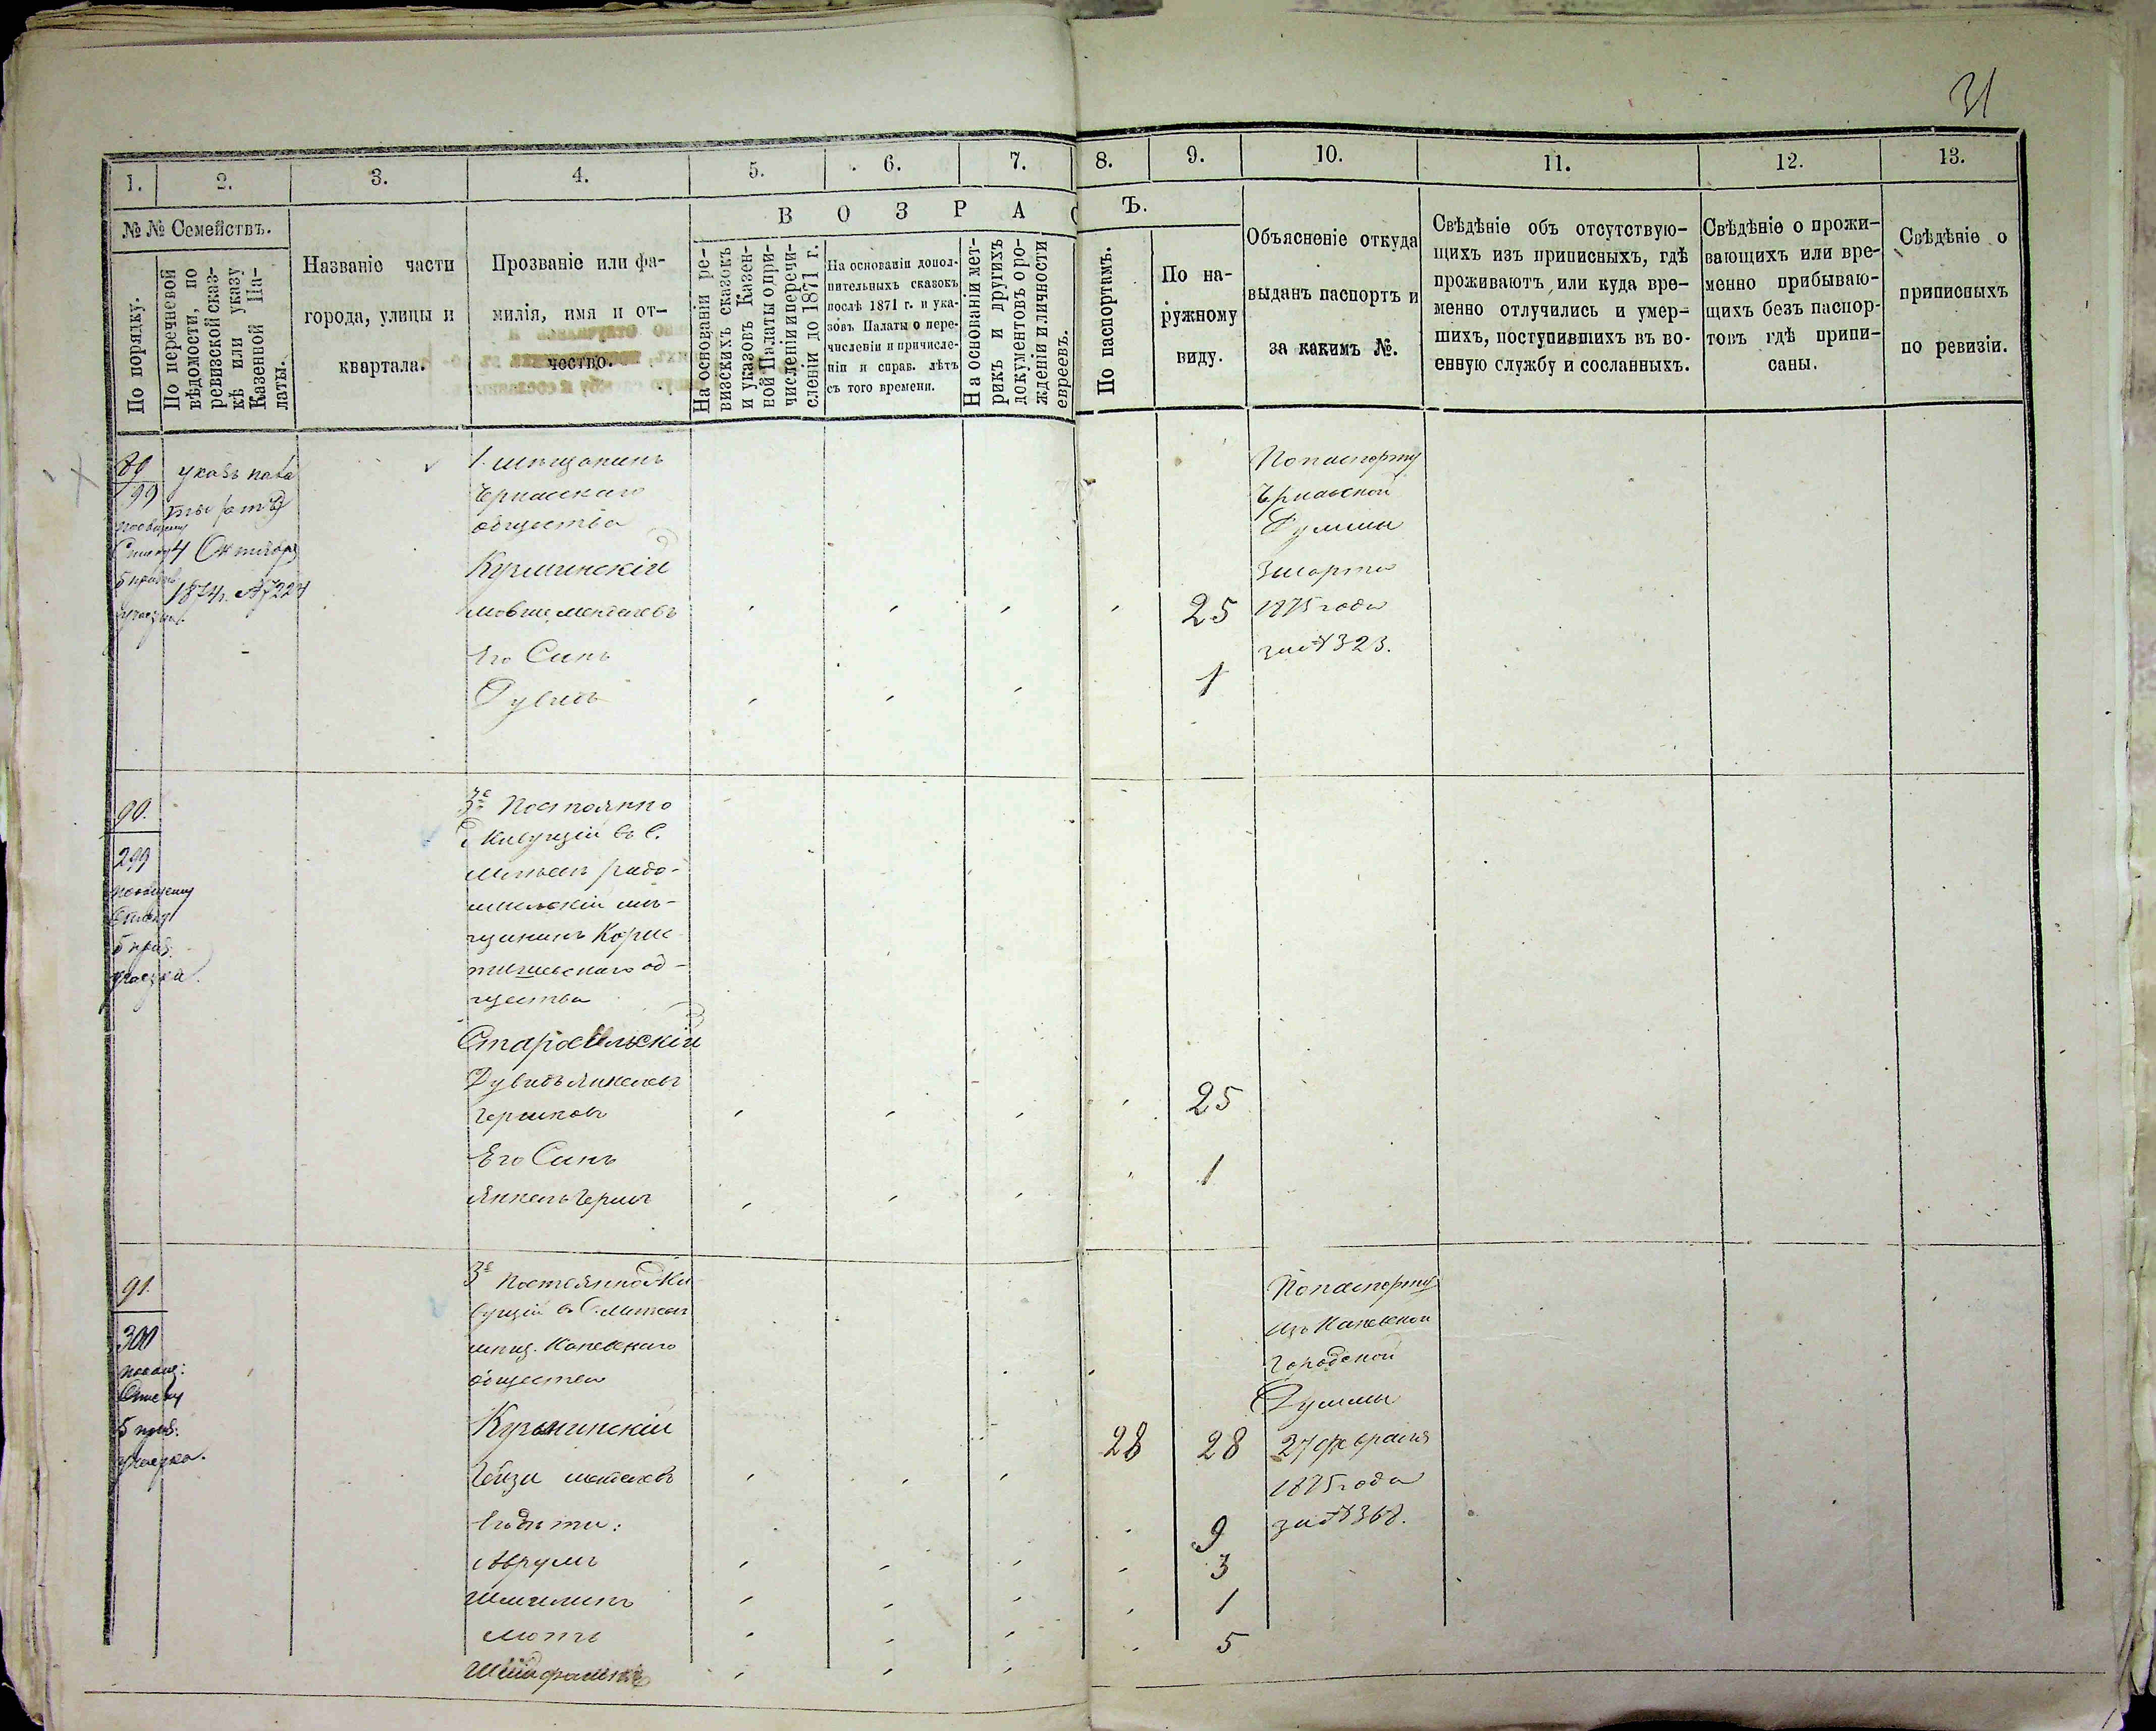 31
1. 2. 3. 4. 5. 6. 7. 8. 9. 10. 11. 12. 13.
№ № Семействъ.
По порядку.
По перечневой
вѣдомости, по
ревизской сказ-
кѣ или указу
Казенной Па-
латы.
Названіе части
города, улицы и
квартала.
Прозваніе или фа-
милія, имя и от-
чество.
В О З Р А С Ъ.
На основаніи ре-
визскихъ сказокъ
и указовъ Казен-
ной Палаты о при-
численіи и перечи-
сленіи до 1871 г.
На основаніи допол-
нительныхъ сказокъ
послѣ 1871 г. и ука-
зовъ Палаты о пере-
численіи и причисле-
ніи и справ. лѣтъ
съ того времени.
На основаніи мет-
рикъ и другихъ
документовъ о ро-
жденіи и личности
евреевъ.
По паспортамъ.
По на-
ружному
виду.
Объясненіе откуда
выданъ паспортъ и
за какимъ №.
Свѣдѣніе объ отсутствую-
щихъ изъ приписныхъ, гдѣ
проживаютъ или куда вре-
менно отлучились и умер-
шихъ, поступившихъ въ во-
енную службу и сосланныхъ.
Свѣдѣніе о прожи-
вающихъ или вре-
менно прибываю-
щихъ безъ паспор-
товъ гдѣ припи-
саны.
Свѣдѣніе о
приписныхъ
по ревизіи.
89
199
Указъ пала
ты
4 Октября
1874г. № 7224
1. мѣщанинъ
общества
Курминскій
Мовша Менделевъ
25
Его Синъ
Дувидъ
1
По паспорту
Думы
3 марта
1875 года
за № 323.
90.
299
пообщему
Списку
5 приз.
участка.
3е Постоянно
Живущій въ С.
Мѣльн. радо-
мысльскій мѣ-
щанинъ Корис-
тишевскаго об-
щества
Старосельскій
Дувидъ Янкелевъ
Гершковъ
25
Его Синъ
1
Янкель Гершъ
91.
300
пообщ:
Списку
5 приз:
участка.
3е Постоянно Жи
вущій въ С.
мѣщ. Каневскаго
общества
Курминскій
Гейзи Менделевъ
28 28
Его дѣти:
Аврумъ
9
3
1
Мотъ
5
По паспорту
изъ Каневской
Городской
Думы
27 февраля
1875 года
за № 368.